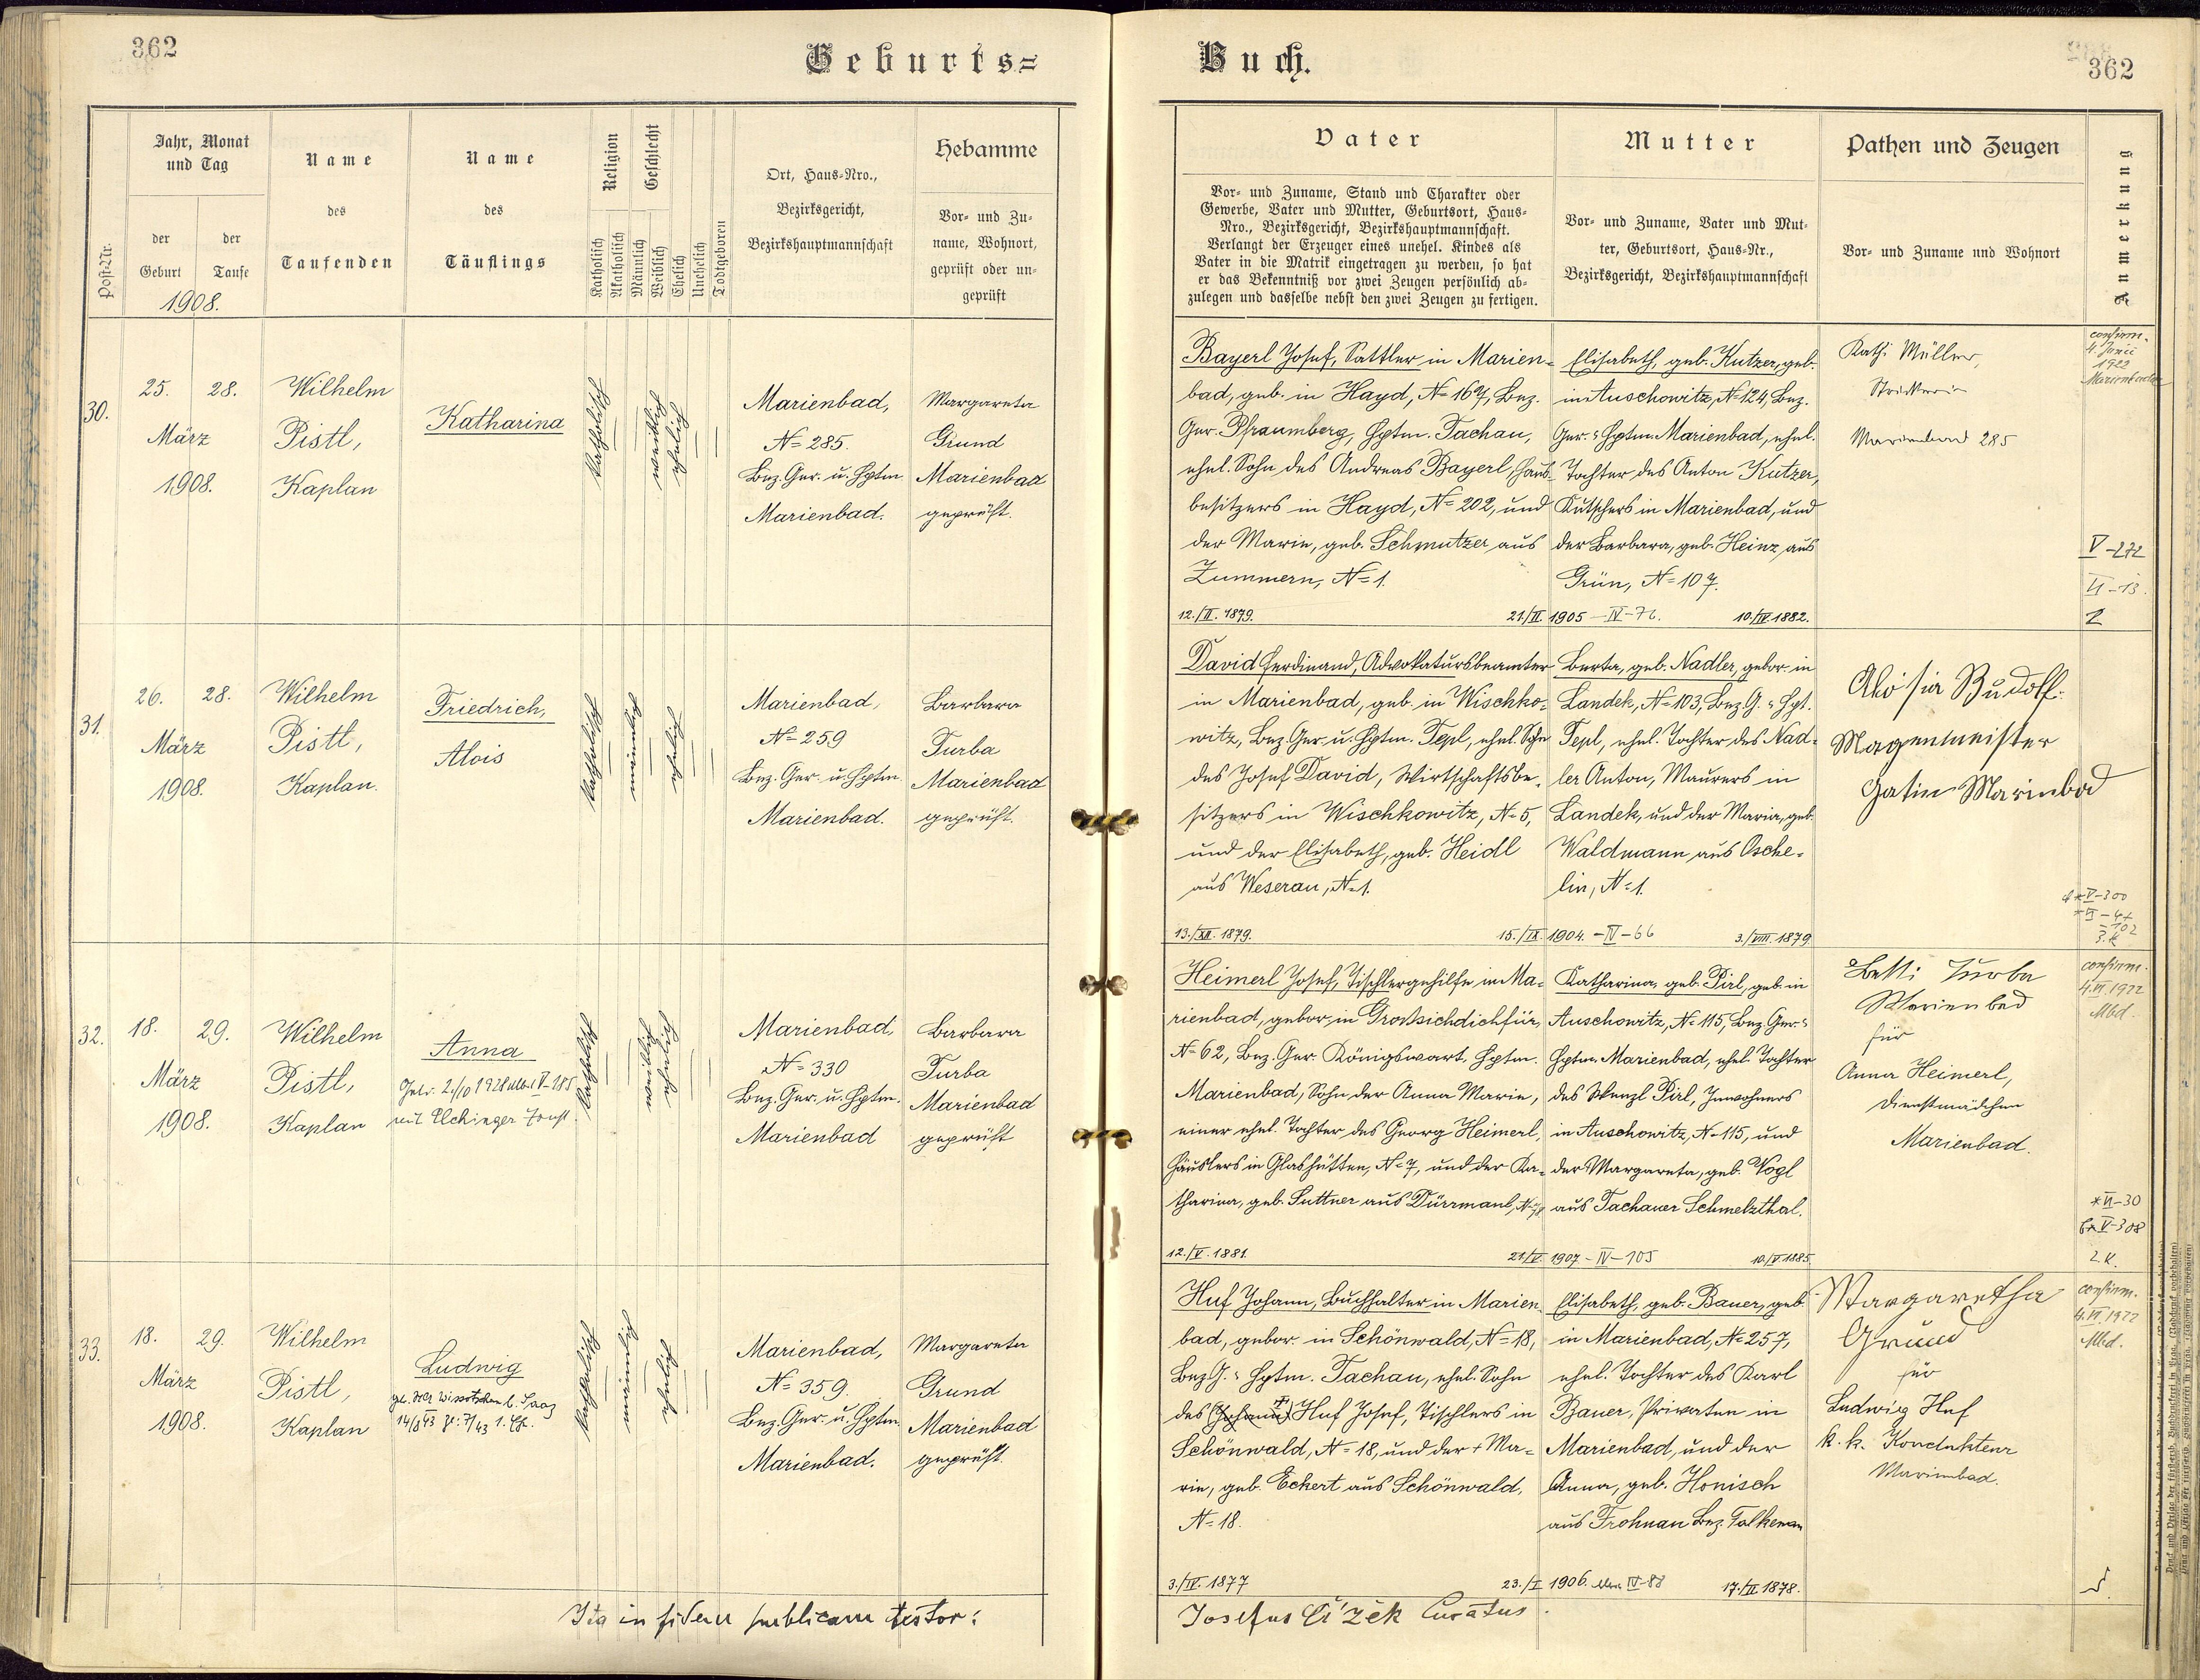 362
Geburts=
Jahr, Monat
und Tag
der
Geburt
der
Taufe
1908.
Post-Nr.
Name
des
Taufenden
Name
des
Täuflings
Religion
Katholisch
Akatholisch
Geschlecht
Männlich
Weiblich
Ehelich
Unehelich
Todtgeboren
Ort, Haus-Nro.,
Bezirksgericht,
Bezirkshauptmannschaft
Hebamme
Vor- und Zu-
name, Wohnort,
geprüft oder un-
geprüft
30.
25. 28.
März
1908.
Wilhelm
Pistl,
Kaplan
Katharina
katholisch
weiblich
ehelich
Marienbad,
N= 285.
Bez. Ger. u. Hptm.
Marienbad.
Margareta
Grund
Marienbad
geprüft.
31.
26. 28.
März
1908.
Wilhelm
Pistl,
Kaplan.
Friedrich,
Alois
katholisch
männlich
ehelich
Marienbad,
N= 259
Bez. Ger. u. Hptm.
Marienbad.
Barbara
Turba
Marienbad
geprüft.
32.
18. 29.
März
1908.
Wilhelm
Pistl,
Kaplan
Anna
katholisch
weiblich
ehelich
Marienbad,
N= 330
Bez. Ger. u. Hptm.
Marienbad
Barbara
Turba
Marienbad
geprüft
33.
18. 29.
März
1908.
Wilhelm
Pistl,
Kaplan
Ludwig
katholisch
männlich
ehelich
Marienbad,
N= 359.
Bez. Ger. u. Hptm.
Marienbad.
Margareta
Grund
Marienbad
geprüft.
Ita in fidem publicam testor:
Buch.
362
Vater
Vor- und Zuname, Stand und Charakter oder
Gewerbe, Vater und Mutter, Geburtsort, Haus-
Nro., Bezirksgericht, Bezirkshauptmannschaft.
Verlangt der Erzeuger eines unehel. Kindes als
Vater in die Matrik eingetragen zu werden, so hat
er das Bekenntniß vor zwei Zeugen persönlich ab-
zulegen und dasselbe nebst den zwei Zeugen zu fertigen.
Mutter
Vor- und Zuname, Vater und Mut-
ter, Geburtsort, Haus-Nr.,
Bezirksgericht, Bezirkshauptmannschaft
Pathen und Zeugen
Vor- und Zuname und Wohnort
Anmerkung
Bayerl Josef, Sattler in Marien-
bad, geb. in Hayd, N= 169, Bez.
Ger. Pfraumberg, Hptm. Tachau,
ehel. Sohn des Andreas Bayerl, Haus-
besitzers in Hayd, N= 202, und
der Marie, geb. Schmutzer aus
Zummern, N= 1.
12./II. 1879.
21./II. 1905 - IV-76.
Elisabeth, geb. Kutzer, geb.
in Auschowitz, N= 124, Bez.
Ger. u. Hptm. Marienbad, ehel.
Tochter des Anton Kutzer,
Kutschers in Marienbad, und
der Barbara, geb. Heinz aus
Grün, N= 107.
10./IV. 1882.
Kath. Müller,
Strickerin
Marienbad 285
confirm.
4. Junii
1922
Marienbad
V-272
VI-13.
2
David Ferdinand, Advokatursbeamter
in Marienbad, geb. in Wischko-
witz, Bez. Ger. u. Hptm. Tepl, ehel. Sohn
des Josef David, Wirtschaftsbe-
sitzers in Wischkowitz, N= 5,
und der Elisabeth, geb. Heidl
aus Weserau, N= 1.
13./XII. 1879.
15./IX. 1904. - IV-66
Berta, geb. Nadler, gebor. in
Landek, N= 103, Bez. G. u. Hpt.
Tepl, ehel. Tochter des Nad-
ler Anton, Maurers in
Landek, und der Maria, geb.
Waldmann aus Osche-
lin, N= 1.
3./VIII. 1879
Gatin Marienbad
V-300
Heimerl Josef, Tischlergehilfe in Ma-
rienbad, gebor. in Großsichdichfür,
N= 62, Bez. Ger. Königswart, Hptm.
Marienbad, Sohn der Anna Marie,
einer ehel. Tochter des Georg Heimerl,
Häuslers in Glashütten, N= 7, und der Ka-
tharina, geb. Suttner aus Dürrmaul,
12./V. 1881.
21./V. 1907 - IV-105
Katharina, geb. Pirl, geb. in
Auschowitz, N= 115, Bez. Ger. u.
Hptm. Marienbad, ehel. Tochter
des Wenzl Pirl, Inwohners
in Auschowitz, N= 115, und
der Margareta, geb. Vogl
aus Tachauer Schmelzthal.
10./V. 1885
Betti Turba
Marienbad
für
Anna Heimerl,
Dienstmädchen
Marienbad.
confirm.
4.VI.1922
Mbd.
*VI-30
V-308
2.K.
Huf Johann, Buchhalter in Marien-
bad, gebor. in Schönwald, N= 18,
Bez G. u. Hptm. Tachau, ehel. Sohn
des (Johann) Huf Josef, Tischlers in
Schönwald, N= 18, und der + Ma-
rie, geb. Eckert aus Schönwald,
N= 18.
3./IV. 1877
23./I. 1906. IV-88
Elisabeth, geb. Bauer, geb.
in Marienbad, N= 257,
ehel. Tochter des Karl
Bauer, Privaten in
Marienbad, und der
Anna, geb. Honisch
aus Frohnau Bez. Falkenau
17./II. 1878.
Margaretha
Grund
für
Ludwig Huf
k. k. Kondukteur
Marienbad.
confirm.
4.VI.1922
Mbd.
Josefus Čížek Curatus.